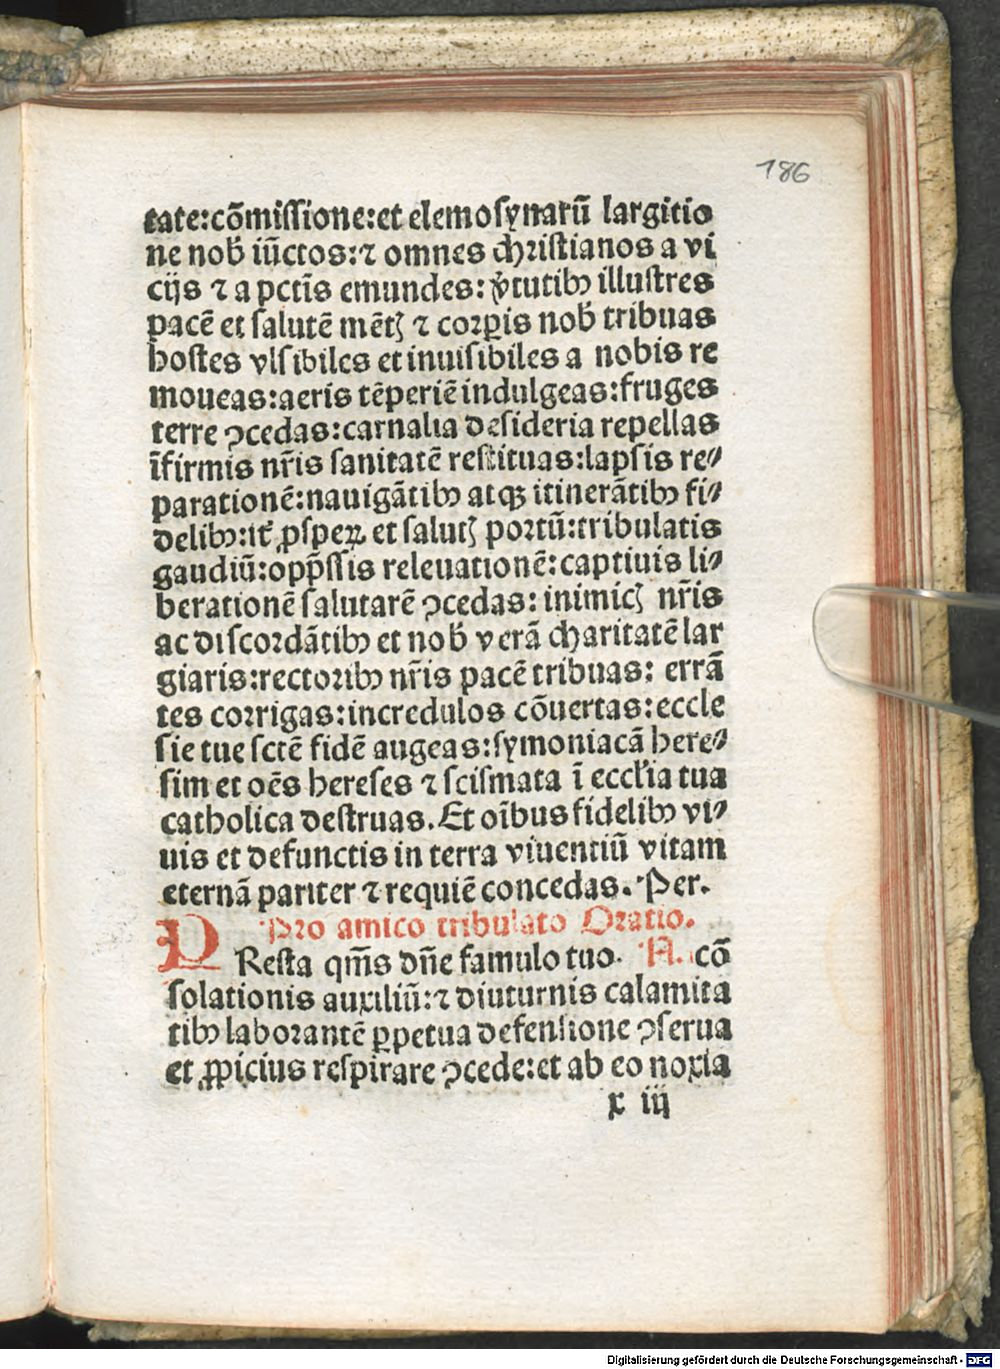 186
tate:cōmissione:et elemosynarū largitio
ne nob̄ iūctos:⁊ omnes christianos a vi
cijs ⁊ a pctīs emundes: v̓tutibꝫ illustres
pacē et salutē mētꝭ ⁊ corꝑis nob̄ tribuas
hostes visibiles et inuisibiles a nobis re
moueas:aeris tēperiē indulgeas:fruges
terre ꝯcedas:carnalia desideria repellas
īfirmis nr̄is sanitatē restituas:lapsis re⸗
parationē:nauigātibꝫ atqꝫ itinerātibꝫ fi⸗
delibꝫ:it̓ ꝓspeꝝ et salutꝭ portū:tribulatis
gaudiū:opp̄ssis releuationē:captiuis li⸗
berationē salutarē ꝯcedas: inimicꝭ nr̄is
ac discordātibꝫ et nob̄ verā charitatē lar
giaris:rectoribꝫ nr̄is pacē tribuas: errā
tes corrigas:incredulos cōuertas:eccle
sie tue sctē fidē augeas:symoniacā here⸗
sim et oēs hereses ⁊ scismata ī eccl'ia tua
catholica destruas. Et oībus fidelibꝫ vi⸗
uis et defunctis in terra viuentiū vitam
eternā pariter ⁊ requiē concedas. Per.
Pro amico tribulato Oratio.
PResta qm̄s dn̄e famulo tuo. N. cō
solationis auxiliū:⁊ diuturnis calamita
tibꝫ laborantē ꝑpetua defensione ꝯserua
et ꝓpicius respirare ꝯcede:et ab eo noxia
x iij
Digitalisierung gefördert durch die Deutsche Forschungsgemeinschaft - DFG